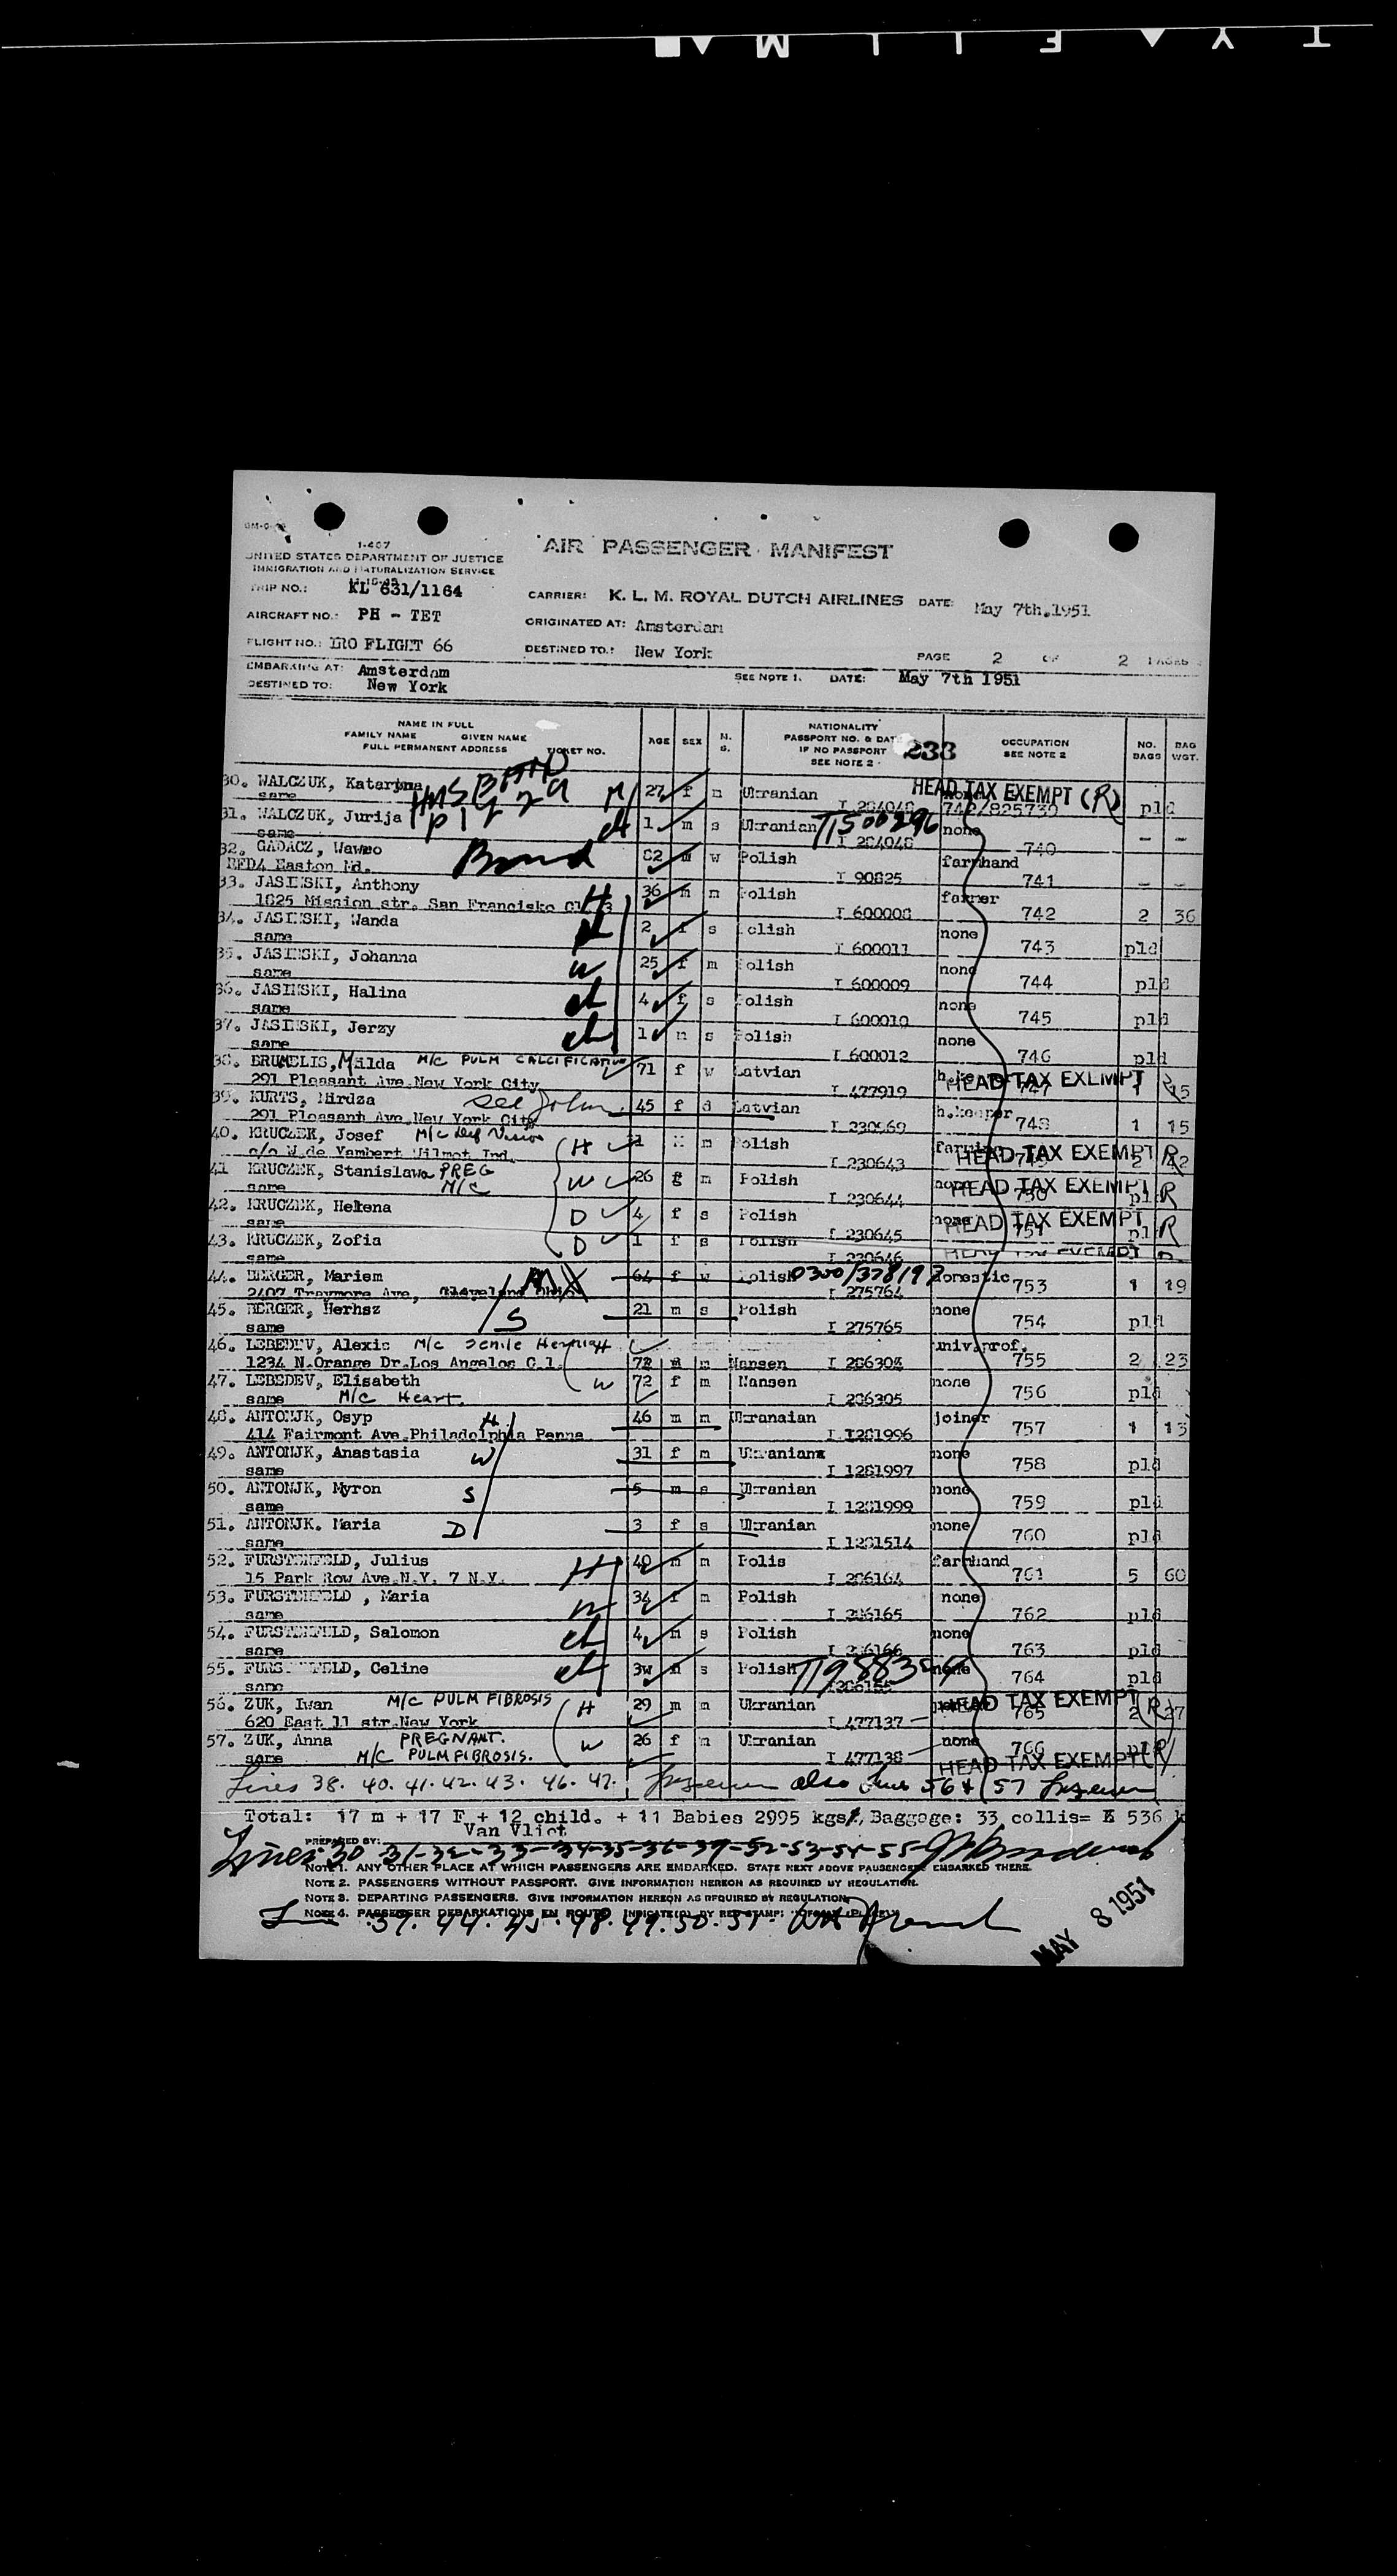 I-467
UNITED STATES DEPARTMENT OF JUSTICE
IMMIGRATION AND NATURALIZATION SERVICE
AIR PASSENGER MANIFEST
TRIP NO.: KL 631/1164
CARRIER: K. L. M. ROYAL DUTCH AIRLINES DATE: May 7th.1951
AIRCRAFT NO.: PH - TET
ORIGINATED AT: Amsterdam
FLIGHT NO.: IRO FLIGHT 66
DESTINED TO: New York
PAGE 2 OF 2 PAGES
EMBARKING AT: Amsterdam
DESTINED TO: New York
SEE NOTE 1. DATE: May 7th 1951
NAME IN FULL
FAMILY NAME GIVEN NAME
FULL PERMANENT ADDRESS TICKET NO.
AGE SEX M. S.
NATIONALITY
PASSPORT NO. & DATE
IF NO PASSPORT
SEE NOTE 2
233
OCCUPATION
SEE NOTE 2
NO. BAGS
BAG WGT.
30. WALCZUK, Kataryna HUSBAND 27 f m Ukranian HEAD TAX EXEMPT (R)
same P1 L29 I 284048 742/825739 pld
31. WALCZUK, Jurija ch 1 m s Ukranian T1500296 none - -
same I 284048 740
32. GADACZ, Wawro Bond 82 m w Polish farmhand
RFD4 Easton Md. I 90825 741 - -
33. JASINSKI, Anthony H 36 m m Polish farmer
1825 Mission str. San Francisko I 600008 742 2 36
34. JASINSKI, Wanda ch 2 f s Polish none
same I 600011 743 pld
35. JASINSKI, Johanna W 25 f m Polish none
same I 600009 744 pld
36. JASINSKI, Halina ch 4 f s Polish none
same I 600010 745 pld
37. JASINSKI, Jerzy ch 1 m s Polish none
same I 600012 746 pld
38. BRUMELIS, Milda M/C PULM CALCIFICATION 71 f w Latvian HEAD TAX EXEMPT
291 Pleasant Ave New York City I 477919 747 1 15
39. KURTS, Mirdza see John 45 f d Latvian h.keeper
291 Pleasant Ave New York City I 230969 748 1 15
40. KRUCZEK, Josef M/C Def Vision H 31 M m Polish HEAD TAX EXEMPT R
c/o W.de Vambert Wilmot Ind. I 230643 2 42
41 KRUCZEK, Stanislawa PREG W 26 f m Polish none HEAD TAX EXEMPT R
same M/C I 230644 750 pld
42. KRUCZEK, Helena D 4 f s Polish none HEAD TAX EXEMPT R
same I 230645 751 pl
43. KRUCZEK, Zofia D 1 f s Polish
same I 230646 HEAD TAX EXEMPT
44. BERGER, Mariem 64 f w Polish 0300/378197 domestic
2407 Traymore Ave, Cleveland Ohio I 275764 753 1 19
45. BERGER, Herhsz S 21 m s Polish none
same I 275765 754 pld
46. LEBEDEV, Alexic M/C Senile Hernia H univ.prof.
1234 N.Orange Dr.Los Angelos 72 m m Nansen I 286304 755 2 23
47. LEBEDEV, Elisabeth W 72 f m Nansen none
same M/C Heart. I 286305 756 pld
48. ANTONJK, Osyp H 46 m m Ukranaian joiner
414 Fairmont Ave.Philadelphia Penna I 1281996 757 1 13
49. ANTONJK, Anastasia W 31 f m Ukranian none
same I 1281997 758 pld
50. ANTONJK, Myron S 5 m s Ukranian none
same I 1281999 759 pld
51. ANTONJK. Maria D 3 f s Ukranian none
same I 1281514 760 pld
52. FURSTENFELD, Julius H 40 m m Polis farmhand
15 Park Row Ave N.Y. 7 N.Y. I 286164 761 5 60
53. FURSTENFELD , Maria W 34 f m Polish none
same I 286165 762 pld
54. FURSTENFELD, Salomon ch 4 m s Polish none
same I 286166 763 pld
55. FURSTENFELD, Celine ch 3w s Polish none
same 764 pld
56. ZUK, Iwan M/C PULM FIBROSIS H 29 m m Ukranian HEAD TAX EXEMPT (R)
620 East 11 str.New York I 477137 765 2 27
57. ZUK, Anna PREGNANT. W 26 f m Ukranian none
same M/C PULM FIBROSIS. I 477138 766 pld HEAD TAX EXEMPT (R)
Lines 38. 40. 41. 42. 43. 46. 47. also line 56 & 57
Total: 17 m + 17 F + 12 child. + 11 Babies 2995 kgs, Baggage: 33 collis= 536 k
PREPARED BY: Van Vliet
Lines 30 31-32-33-34-35-36-37-52-53-54-55
NOTE 1. ANY OTHER PLACE AT WHICH PASSENGERS ARE EMBARKED. STATE NEXT ABOVE PASSENGERS EMBARKED THERE.
NOTE 2. PASSENGERS WITHOUT PASSPORT. GIVE INFORMATION HEREON AS REQUIRED BY REGULATION.
NOTE 3. DEPARTING PASSENGERS. GIVE INFORMATION HEREON AS REQUIRED BY REGULATION.
NOTE 4. PASSENGER DEBARKATIONS EN ROUTE INDICATE(D) BY RED STAMP:
Line 39. 44. 45. 48. 49. 50. 51.
MAY 8 1951